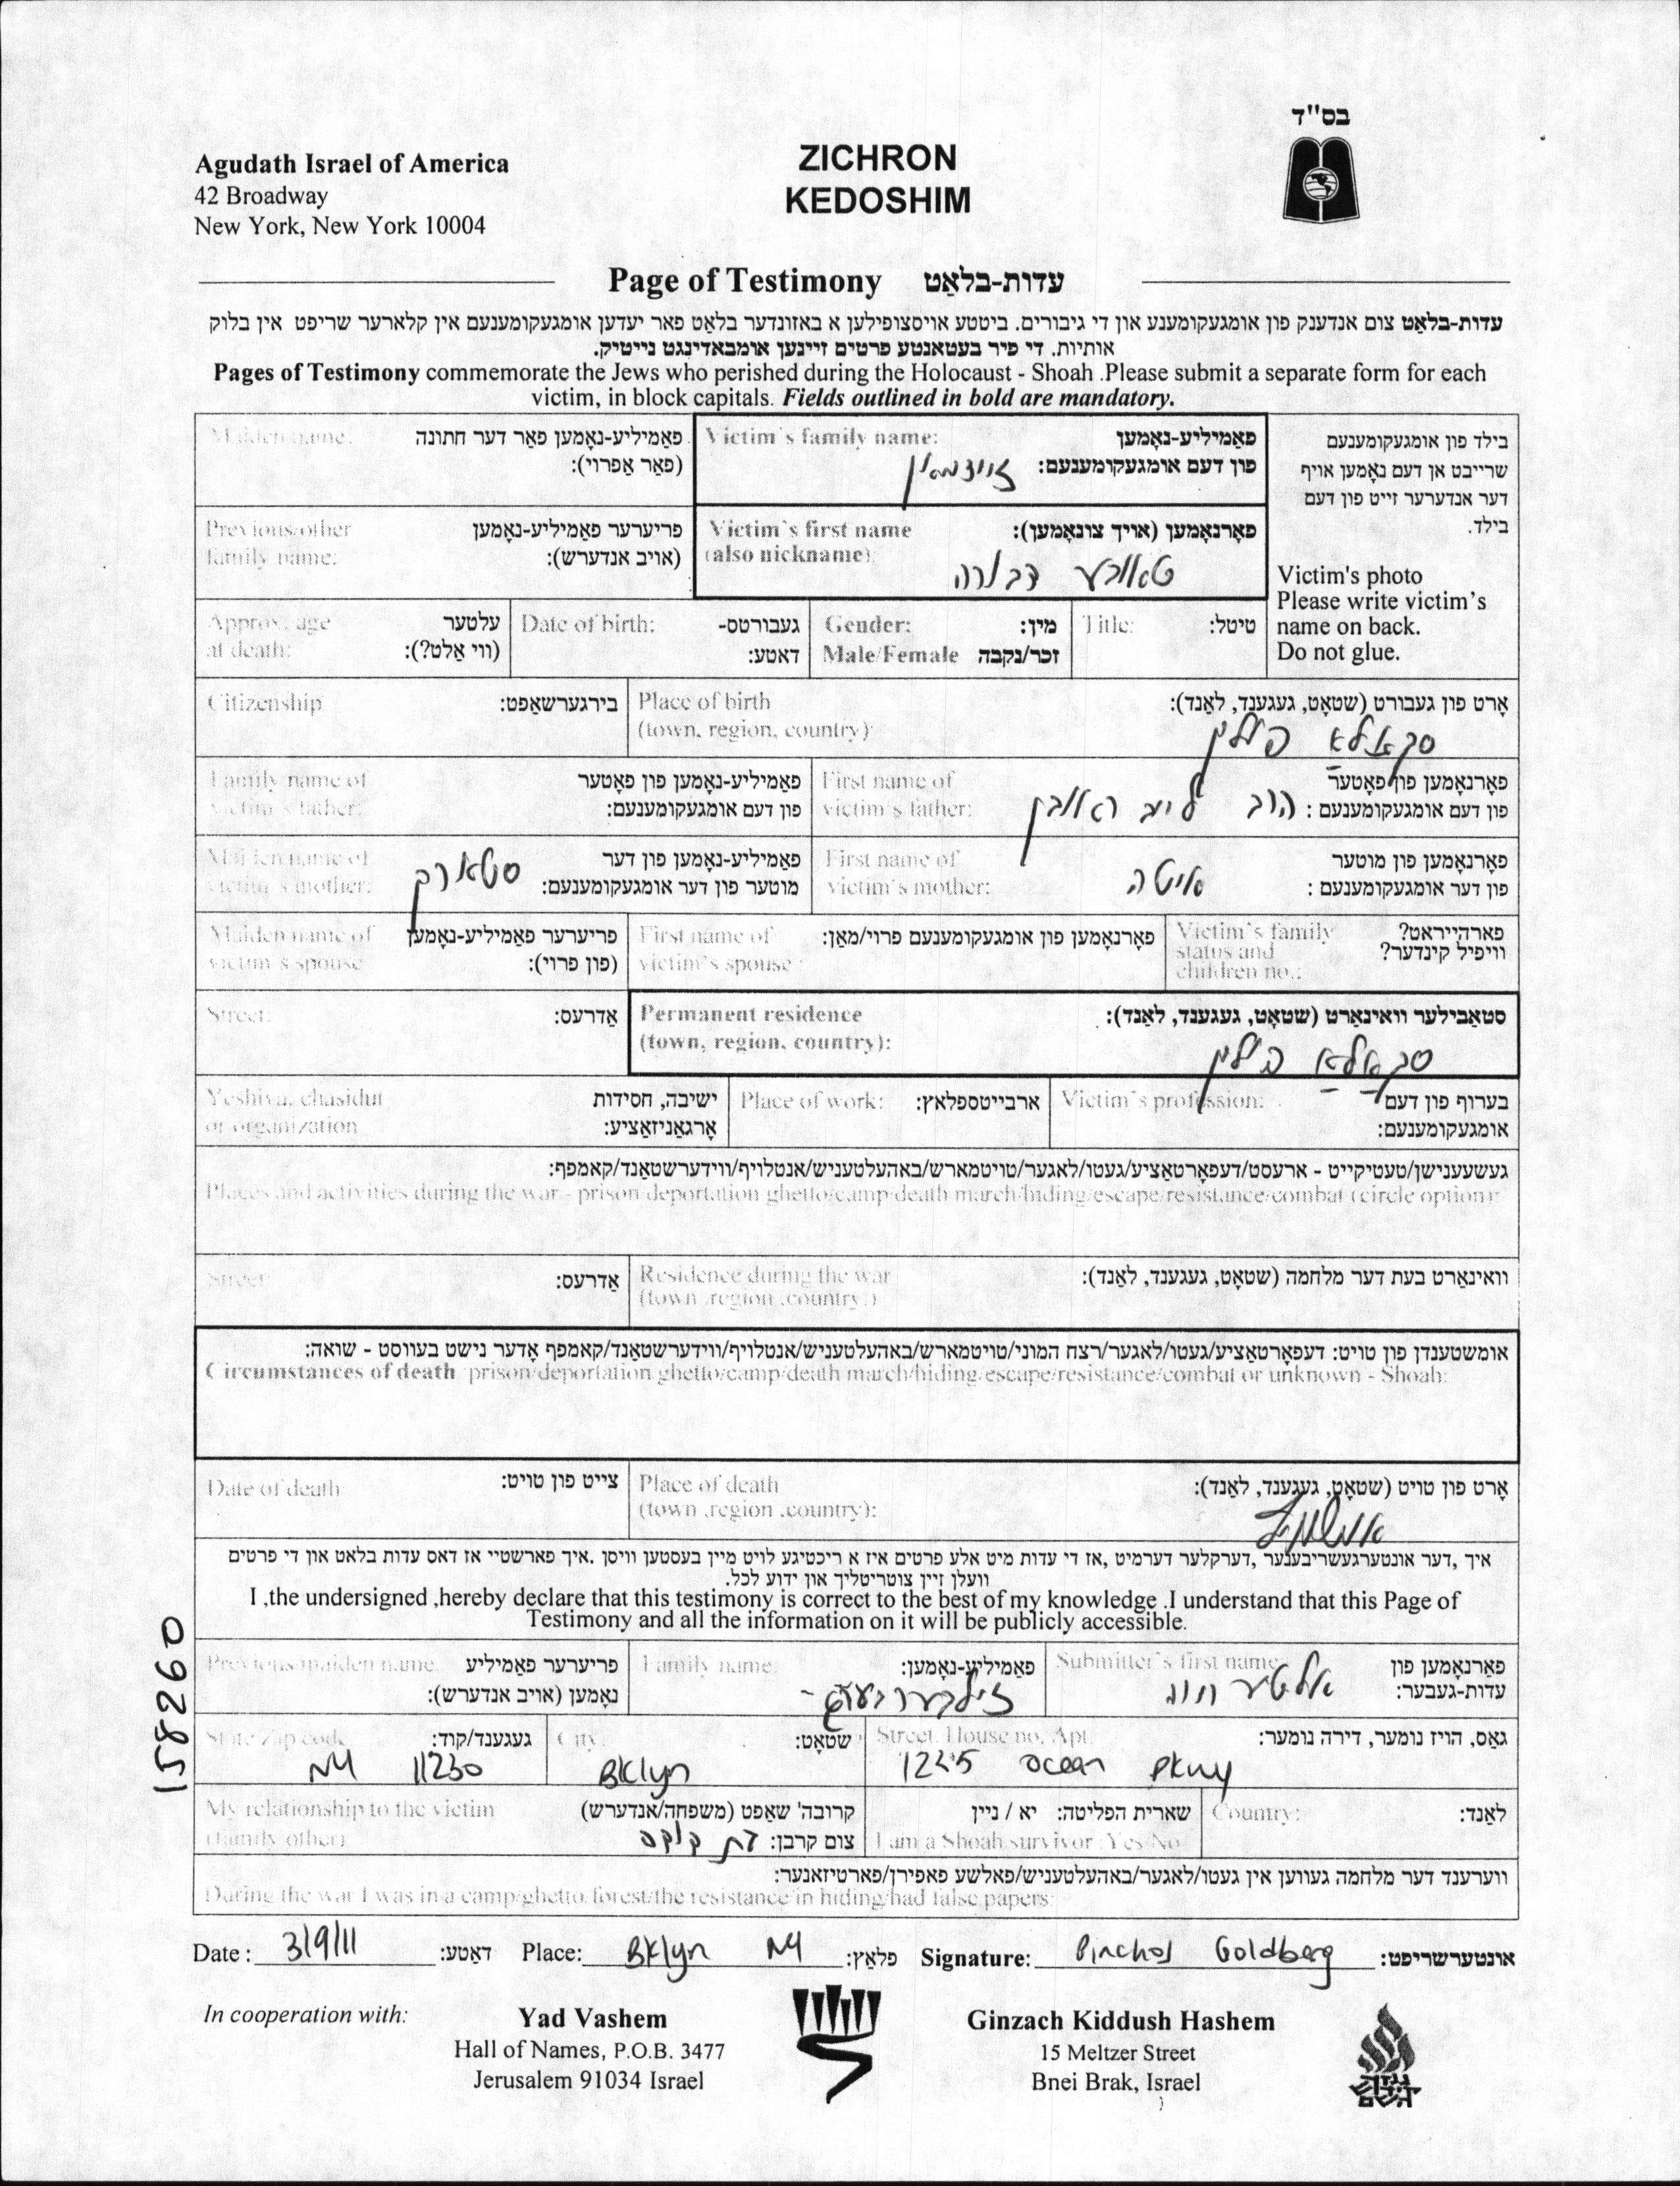 בס"ד
Agudath Israel of America
42 Broadway
New York, New York 10004
ZICHRON
KEDOSHIM
Page of Testimony עדות-בלאַט
עדות-בלאַט צום אנדענק פון אומגעקומענע און די גיבורים. ביטטע אויסצופילען א באזונדער בלאַט פאר יעדען אומגעקומענעם אין קלארער שריפט אין בלוק
אותיות. די פיר בעטאנטע פרטים זיינען אומבאדינגט נייטיק.
Pages of Testimony commemorate the Jews who perished during the Holocaust - Shoah .Please submit a separate form for each
victim, in block capitals. Fields outlined in bold are mandatory.
בילד פון אומגעקומענעם
שרייבט אן דעם נאָמען אויף
דער אנדערער זייט פון דעם
בילד.
Victim's photo
Please write victim's
name on back.
Do not glue.
Victim's family name: פאַמיליע-נאָמען
פון דעם אומגעקומענעם: זיידמאן
Maiden name: פאַמיליע-נאָמען פאַר דער חתונה
(פאַר אַפרוי):
Victim's first name פאָרנאָמען (אויך צונאָמען):
(also nickname):
טאובע דבורה
Previous/other פריערער פאַמיליע-נאָמען
family name: (אויב אנדערש):
Title: טיטל:
Gender: מין:
Male/Female זכר/נקבה
Date of birth: געבורטס-
דאטע:
Approx. age עלטער
at death: (ווי אַלט?):
Place of birth אָרט פון געבורט (שטאָט, געגענד, לאַנד):
(town, region, country):
סקאלא פוילין
Citizenship בירגערשאַפט:
First name of פאָרנאָמען פון פאָטער
victim's father: פון דעם אומגעקומענעם : הרב לייב ראובן
Family name of פאַמיליע-נאָמען פון פאָטער
victim's father: פון דעם אומגעקומענעם:
First name of פאָרנאָמען פון מוטער
victim's mother: פון דער אומגעקומענעם : איטה
Maiden name of פאַמיליע-נאָמען פון דער
victim's mother: מוטער פון דער אומגעקומענעם: סטארק
Victim's family פארהייראט?
status and וויפיל קינדער?
children no.:
First name of פאָרנאָמען פון אומגעקומענעם פרוי/מאַן:
victim's spouse :
Maiden name of פריערער פאַמיליע-נאָמען
victim's spouse (פון פרוי):
Permanent residence סטאַבילער וואינאַרט (שטאָט, געגענד, לאַנד):
(town, region, country):
סקאלא פוילין
Street: אַדרעס:
Victim's profession: בערוף פון דעם
אומגעקומענעם:
Place of work: ארבייטספלאץ:
Yeshiva, chasidut ישיבה, חסידות
or organization אָרגאַניזאַציע:
געשעענישן/טעטיקייט - ארעסט/דעפאָרטאַציע/געטו/לאגער/טויטמארש/באהעלטעניש/אנטלויף/ווידערשטאַנד/קאמפף:
Places and activities during the war - prison/deportation ghetto/camp/death march/hiding/escape/resistance/combat (circle option):
Residence during the war וואינאַרט בעת דער מלחמה (שטאָט, געגענד, לאַנד):
(town .region .country.)
Street: אַדרעס:
אומשטענדן פון טויט: דעפאָרטאַציע/געטו/לאגער/רצח המוני/טויטמארש/באהעלטעניש/אנטלויף/ווידערשטאַנד/קאמפף אָדער נישט בעווסט - שואה:
Circumstances of death prison/deportation/ghetto/camp/death march/hiding/escape/resistance/combat or unknown - Shoah:
Place of death אָרט פון טויט (שטאָט, געגענד, לאַנד):
(town .region .country):
Date of death צייט פון טויט:
איך ,דער אונטערגעשריבענער ,דערקלער דערמיט ,אז די עדות מיט אלע פרטים איז א ריכטיגע לויט מיין בעסטען וויסן .איך פארשטיי אז דאס עדות בלאט און די פרטים
וועלן זיין צוטריטליך און ידוע לכל.
I ,the undersigned ,hereby declare that this testimony is correct to the best of my knowledge .I understand that this Page of
Testimony and all the information on it will be publicly accessible.
Submitter's first name פאָרנאָמען פון
עדות-געבער: אלטע חוה
Family name: פאַמיליע-נאָמען:
זילבערבערג
Previous/maiden name: פריערער פאַמיליע
נאָמען (אויב אנדערש):
Street. House no. Apt. גאַס, הויז נומער, דירה נומער:
1225 Ocean Pkwy
City: שטאָט:
Bklyn
State/zip code געגענד/קוד:
NY 11230
Country: לאַנד:
שארית הפליטה: יא / ניין
I am a Shoah survivor :Yes/No
My relationship to the victim קרובה' שאַפט (משפחה/אנדערש)
(family/other) צום קרבן:
ווערענד דער מלחמה געווען אין געטו/לאגער/באהעלטעניש/פאלשע פאפירן/פארטיזאנער:
During the war I was in a camp/ghetto/forest/the resistance/in hiding/had false papers:
Date : 3/9/11 דאטע: Place: Bklyn NY פלאַץ: Signature: Pinchos Goldberg אונטערשריפט:
In cooperation with:
Yad Vashem
Hall of Names, P.O.B. 3477
Jerusalem 91034 Israel
Ginzach Kiddush Hashem
15 Meltzer Street
Bnei Brak, Israel
158260